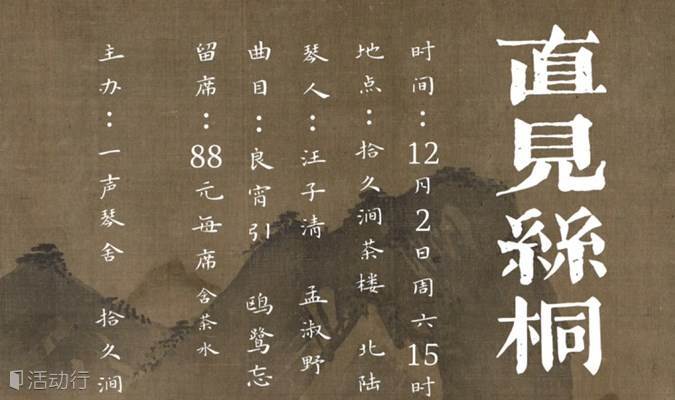 直見絲桐
时间：12月2日周六15时
地点：拾久涧茶楼 北陆
琴人：汪子清 孟淑野
曲目：良宵引 鸥鹭忘
留席：88元每席含茶水
主办：一声琴舍 拾久涧
活动行